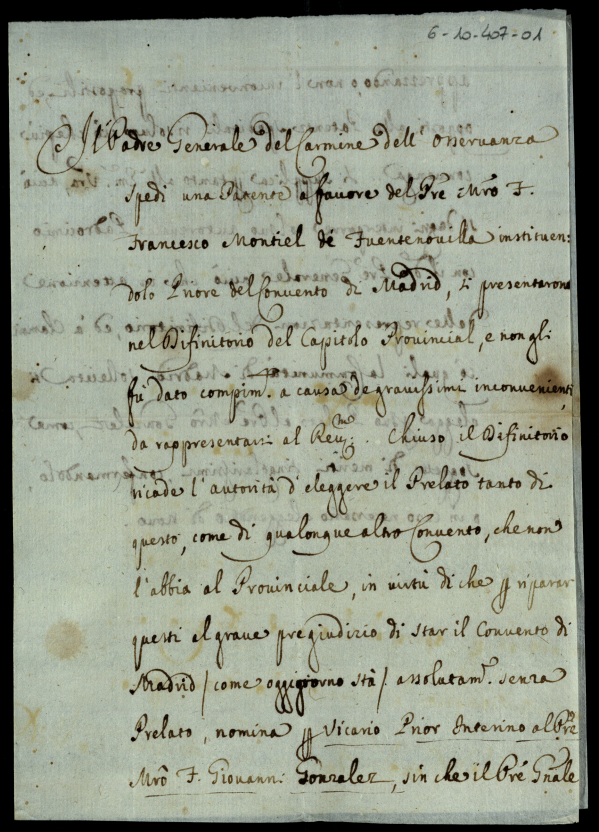 6-10-407-01
Il Padre Generale del Carmine dell' Osservanza
spedì una Patente a favore del Prẽ Mrõ F.
Francesco Montiel de Fuentenovilla instituen:
dolo Priore del Convento di Madrid, si presentarono
nel Difinitorio del Capitolo Provincial, e non gli
fù dato compim.to a causa de gravissimi inconvenienti,
da rappresentarsi al Rev.mo. Chiuso il Difinitorio
ricade l'autorità d'eleggere il Prelato tanto di
questo, come di qualonque altro Convento, che non
l'abbia al Provinciale, in virtù di che p riparar
questi al grave pregiudizio di star il Convento di
Madrid / come oggigiorno stà / assolutam.te senza
Prelato, nomina p Vicario Prior Interino al Prẽ
Mrõ F. Giovanni Gonzalez, sin che il Prẽ Gñale